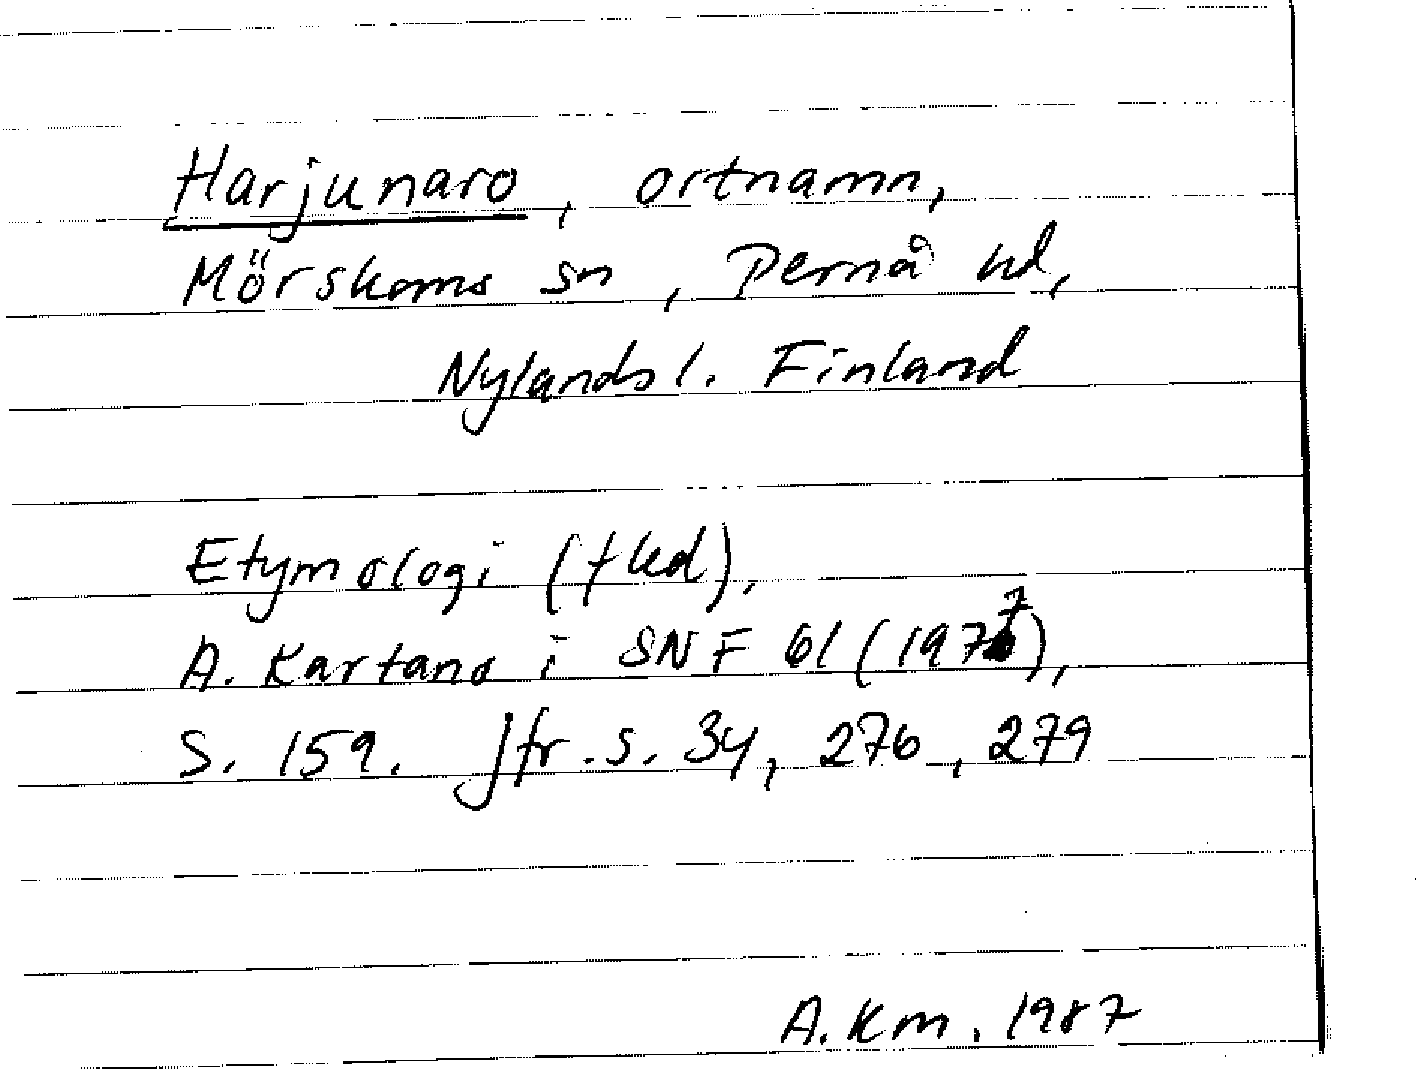 Harjunaro, ortnamn,
Mörskoms sn, Pernå hd,
Nylands l. Finland
Etymologi (f led),
A. Kartano i SNF 61 (1977),
S. 159. Jfr. s. 34, 276, 279
A. Km. 1987